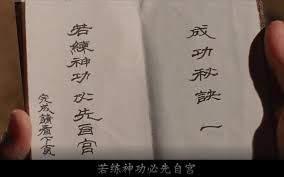 成功秘訣 一
若練神功 必先自宮
完成請看下頁
若练神功必先自宫